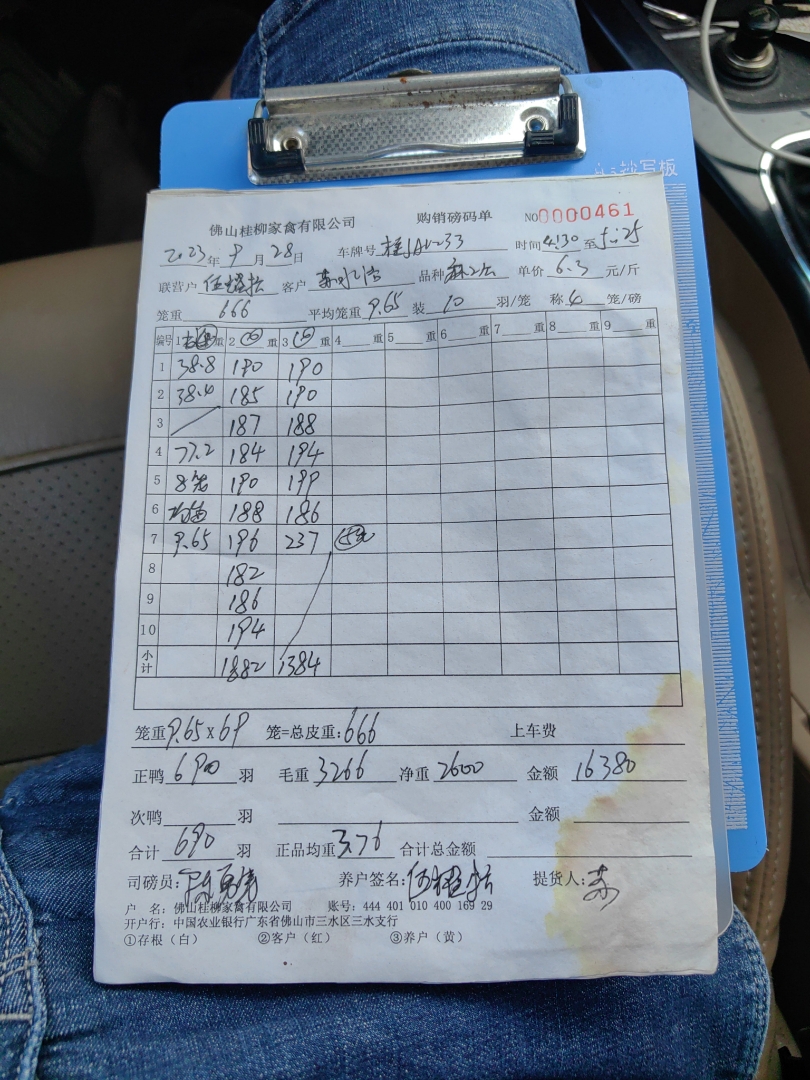 抄写板
佛山桂柳家禽有限公司 购销磅码单 NO0000461
2023年9月28日 车牌号 时间4:30至5:25
联营户 客户 品种 单价6.3元/斤
笼重666 平均笼重9.65装10羽/笼 称4笼/磅
编号 1 重 2 重 3 重 4 重 5 重 6 重 7 重 8 重 9 重
1 38.8 190 190
2 38.4 185 190
3 187 188
4 77.2 184 194
5 8笼 190 199
6 188 186
7 9.65 196 237 5笼
8 182
9 186
10 194
小计 1882 1384
笼重9.65x69 笼=总皮重:666 上车费
正鸭690羽 毛重3266 净重2600 金额16380
次鸭 羽 金额
合计690羽 正品均重3.76 合计总金额
司磅员: 养户签名: 提货人:苏
户 名: 佛山桂柳家禽有限公司 账号: 444 401 010 400 169 29
开户行: 中国农业银行广东省佛山市三水区三水支行
①存根（白） ②客户（红） ③养户（黄）